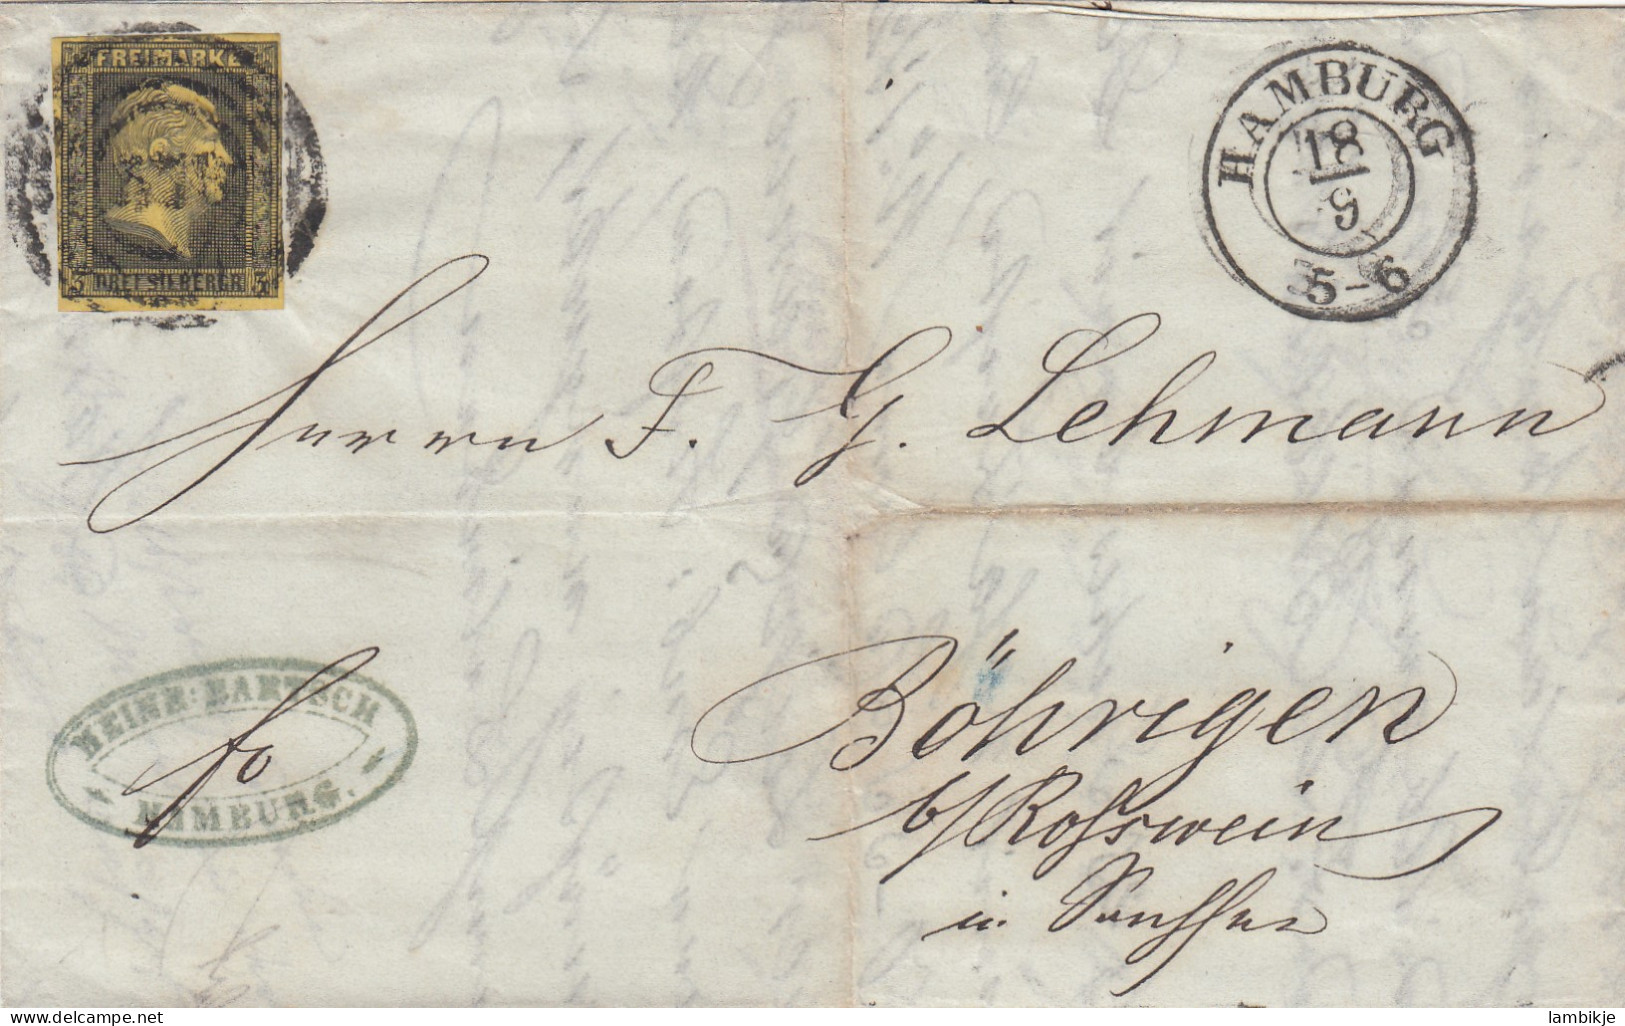 FREIMARKE
3 DREI SILBERGR 3
HAMBURG
18
9
5-6
Herrn F. G. Lehmann
HEINR: BARTSCH
HAMBURG.
fo
Böhrigen
b/Roßwein
in Sachsen
lambikje